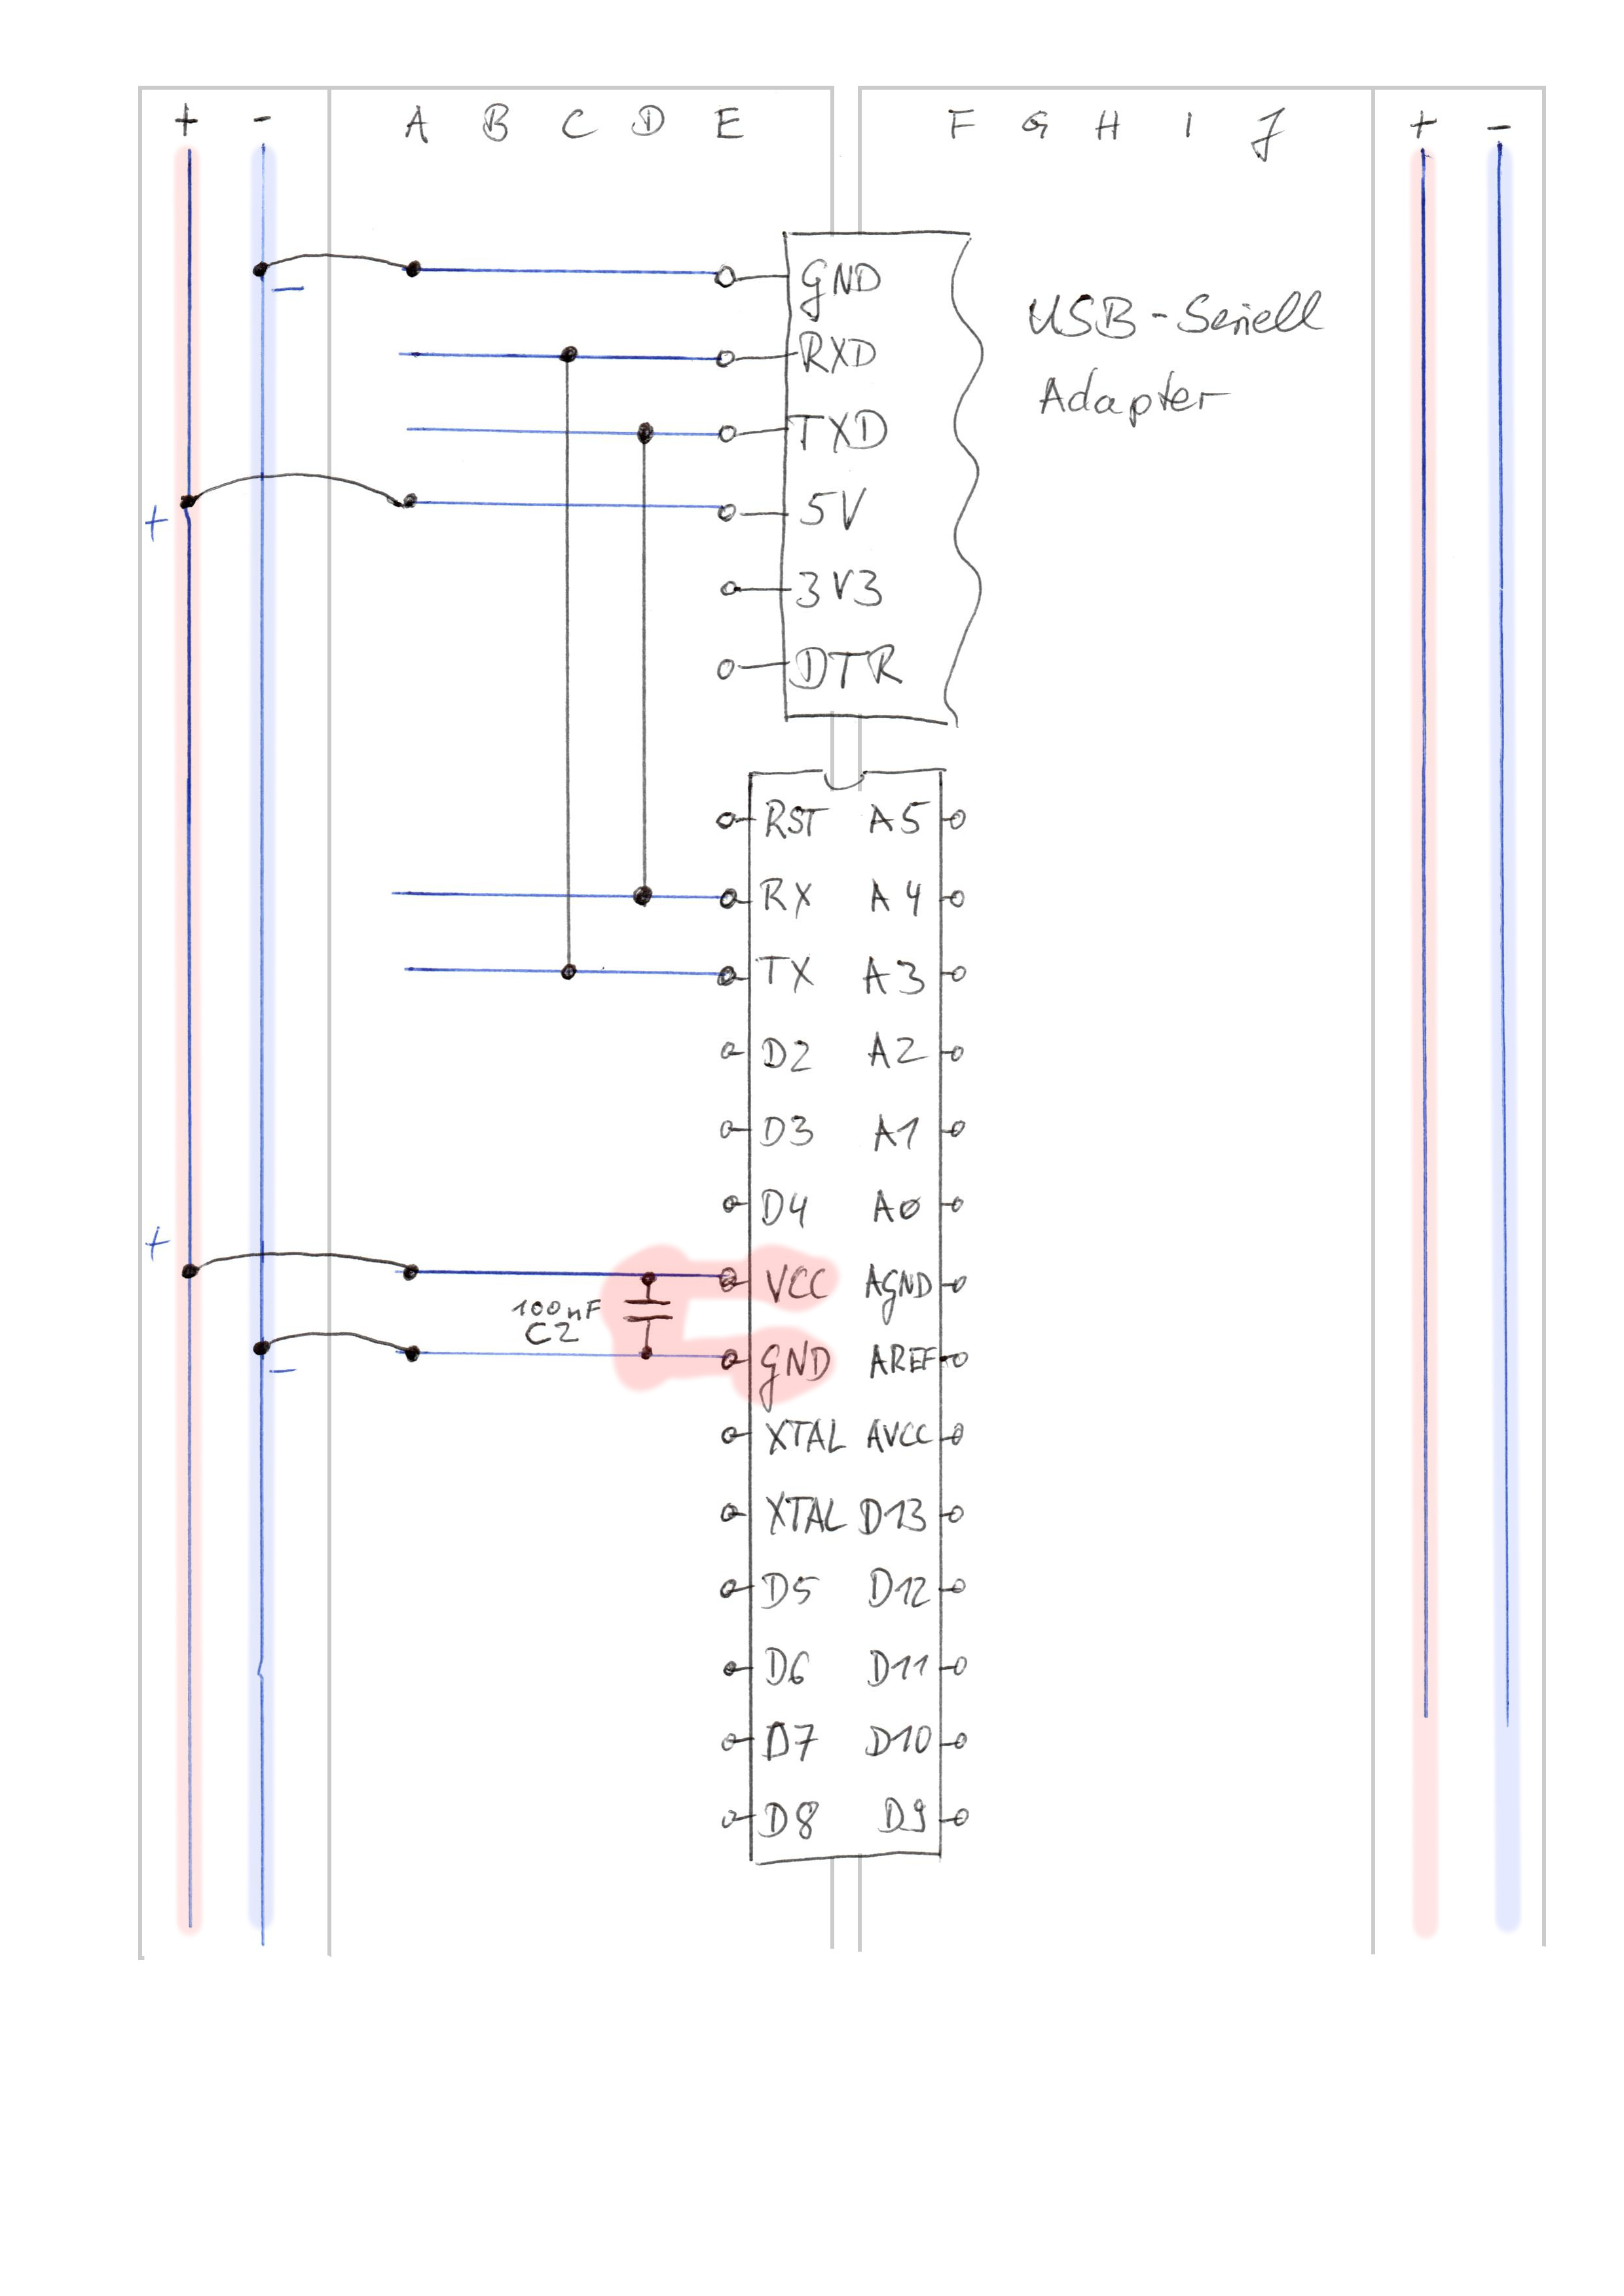 + - A B C D E F G H I J + -
GND
-
RXD
TXD
5V
+
3V3
DTR
USB-Seriell
Adapter
RST A5
RX A4
TX A3
D2 A2
D3 A1
D4 A0
+
VCC AGND
100nF
C2
GND AREF
-
XTAL AVCC
XTAL D13
D5 D12
D6 D11
D7 D10
D8 D9